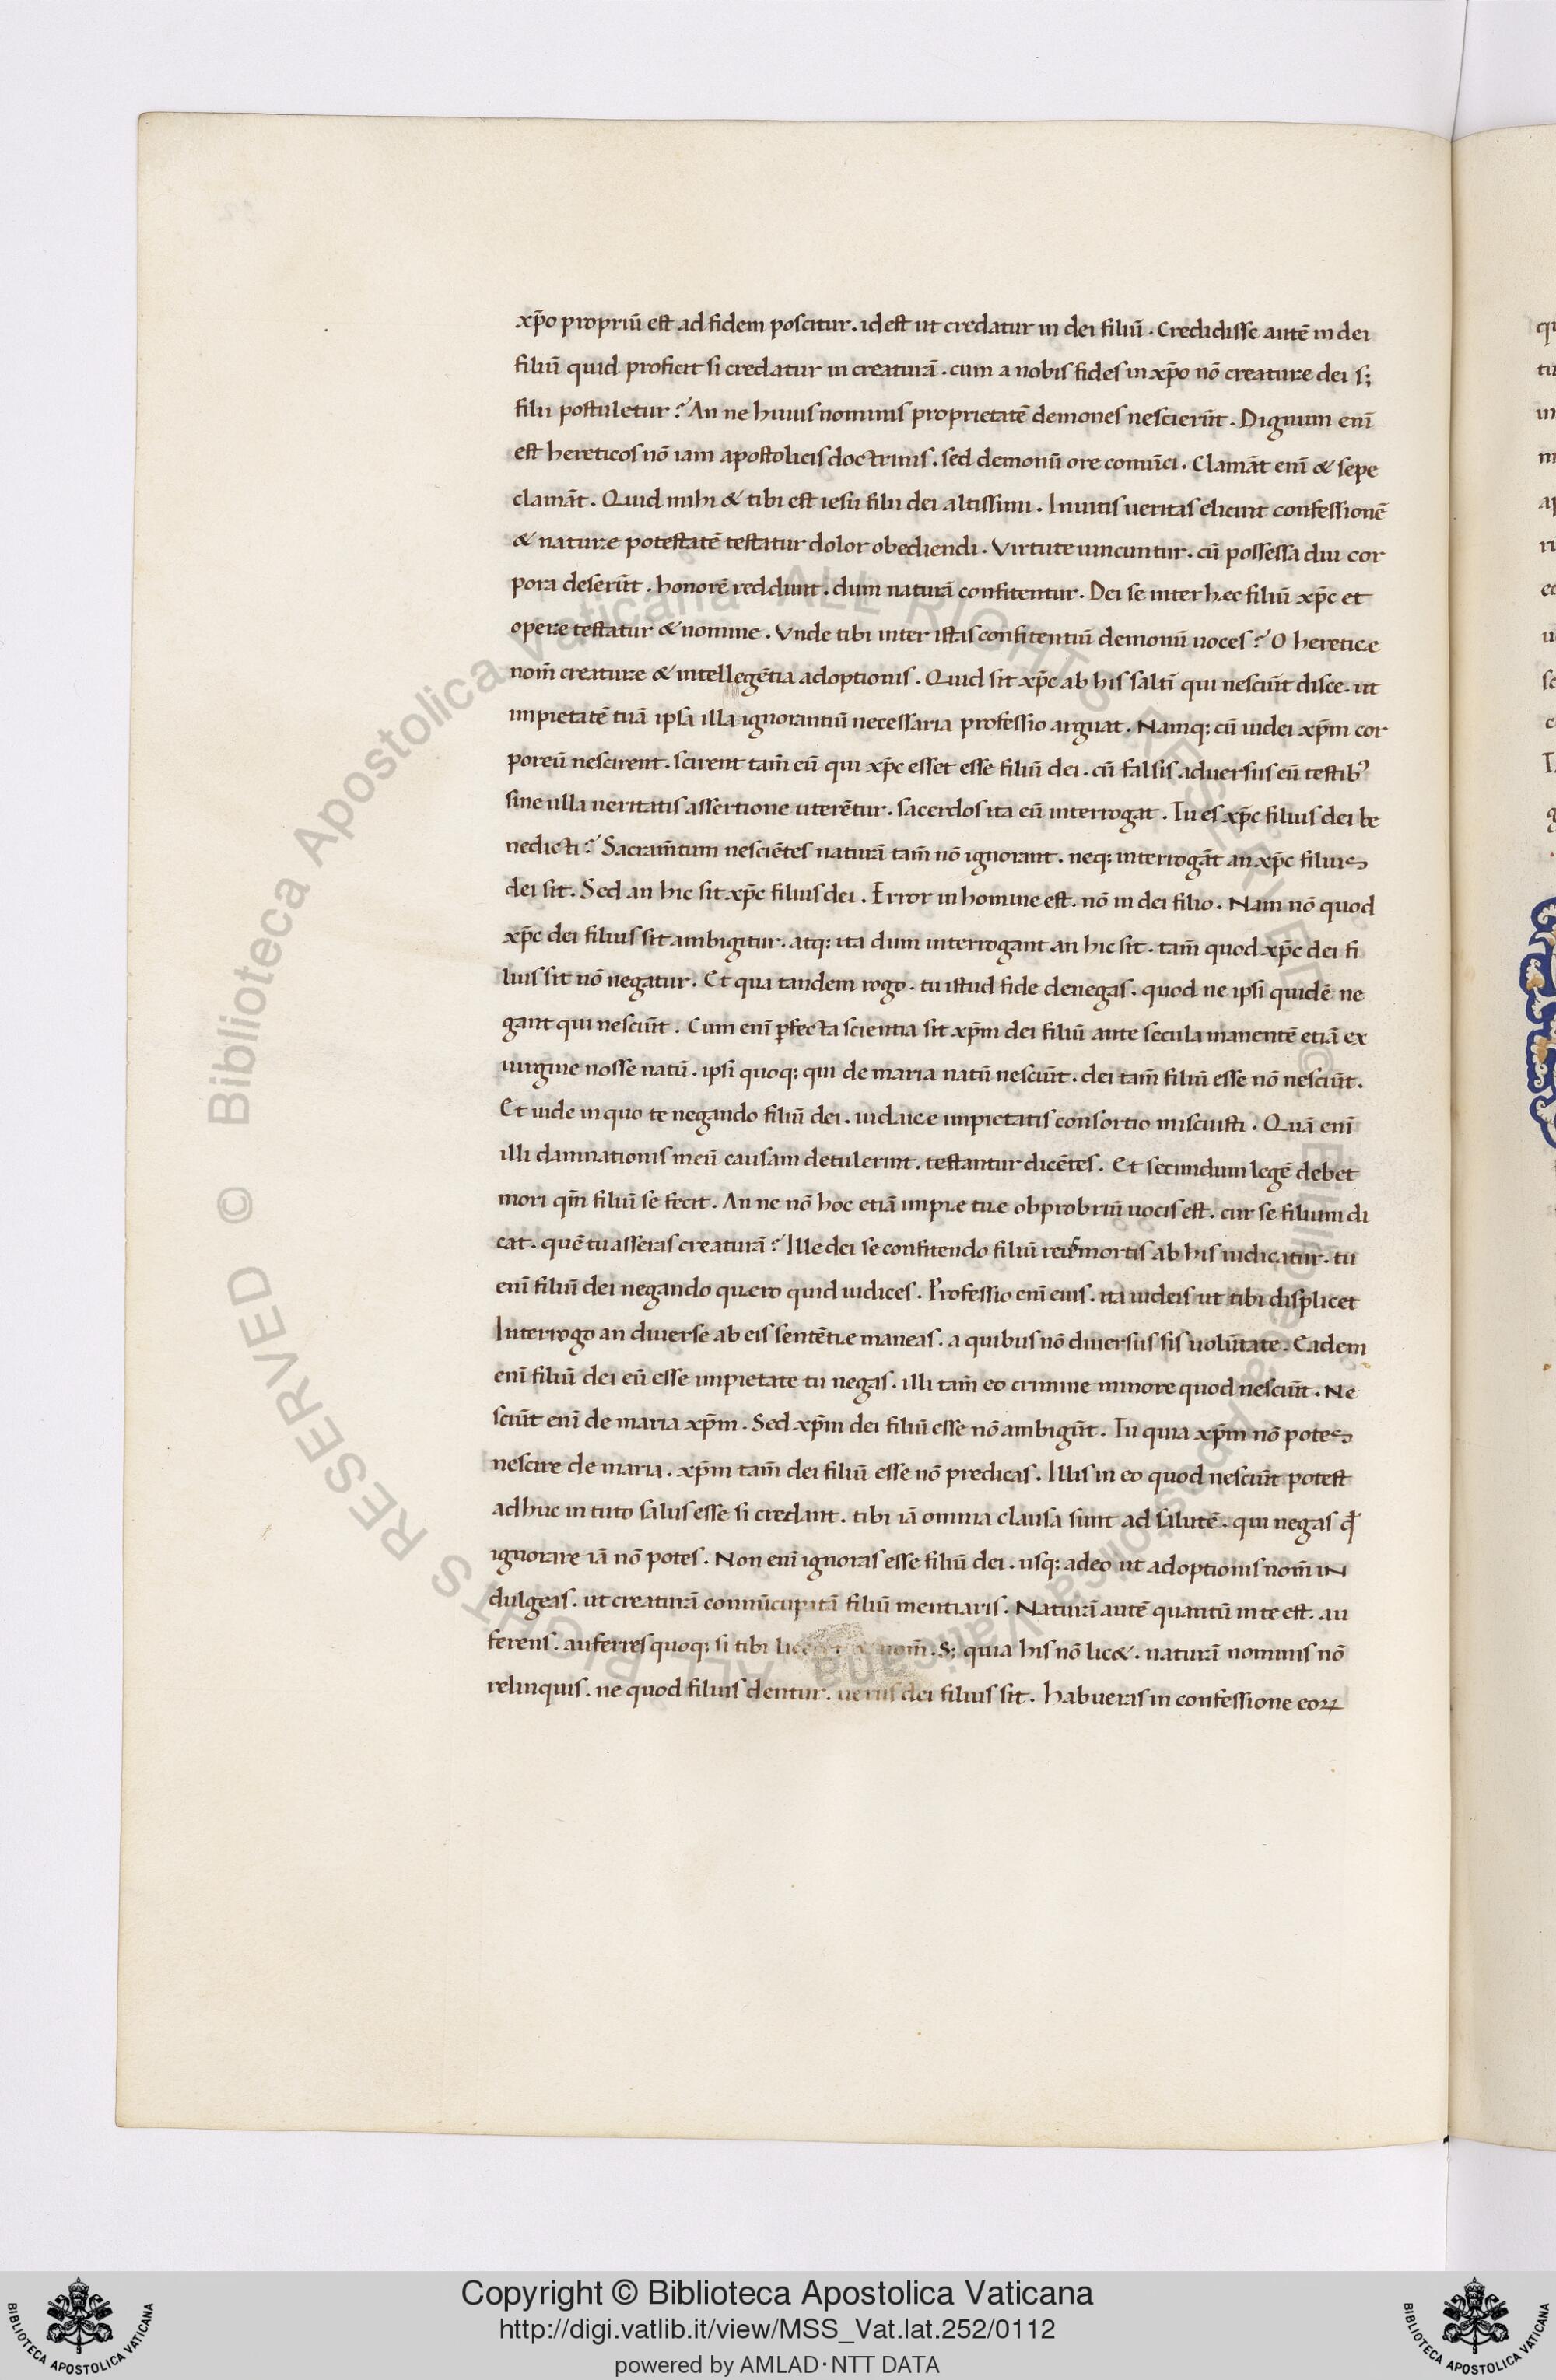 xp̄o propriū est ad fidem poscitur. idest ut credatur in dei filiū. Credidisse autē in dei
filiū quid proficit si credatur in creaturā. cum a nobis fides in xp̄o nō creaturæ dei s;
filii postuletur? An ne huius nominis proprietatē demones nescierūt. Dignum enī
est hereticos nō iam apostolicis doctrinis. sed demonū ore conuīci. Clamāt enī & sepe
clamāt. Quid mihi & tibi est iesu filii dei altissimi. Inuitis ueritas elicuit confessionē
& naturæ potestatē testatur dolor obediendi. Virtute uincuntur. cū possessa diu cor
pora deserūt. honorē reddunt. dum naturā confitentur. Dei se inter hæc filiū xp̄c et
opere testatur & nomine. Vnde tibi inter istas confitentiū demonū uoces? O heretice
nom̄ creaturæ & intellegētia adoptionis. Quid sit xp̄c ab his saltī qui nesciūt disce. ut
impietatē tuā ipsa illa ignorantiū necessaria professio arguat. Namq: cū iudei xp̄m cor
poreū nescirent. scirent tam̄ eū qui xp̄c esset esse filiū dei. cū falsis aduersus eū testib⁹
sine ulla ueritatis assertione uterētur. sacerdos ita eū interrogat. Tu es xp̄c filius dei be
nedicti? Sacram̄tum nesciētes naturā tam̄ nō ignorant. neq: interrogāt an xp̄c filius
dei sit. Sed an hic sit xp̄c filius dei. Error in homine est. nō in dei filio. Nam nō quod
xp̄c dei filius sit ambigitur. atq: ita dum interrogant an hic sit. tam̄ quod xp̄c dei fi
lius sit nō negatur. Et qua tandem rogo. tu istud fide denegas. quod ne ipsi quidē ne
gant qui nesciūt. Cum enī ꝑfecta scientia sit xp̄m dei filiū ante secula manentē etiā ex
uirgine nosse natū. ipsi quoq: qui de maria natū nesciūt. dei tam̄ filiū esse nō nesciūt.
Et uide in quo te negando filiū dei. iudaicæ impietatis consortio miscuisti. Quā enī
illi damnationis in eū causam detulerint. testantur dicētes. Et secundum legē debet
mori qm̄ filiū se fecit. An ne nō hoc etiā impiæ tuæ obprobriū uocis est. cur se filium di
cat. quē tu asseras creaturā? Ille dei se confitendo filiū reus mortis ab his iudicatur. tu
enī filiū dei negando quæro quid iudices. Professio enī eius. ita iudeis ut tibi displicet
Interrogo an diuersæ ab eis sentētiæ maneas. a quibus nō diuersus sis uolūtate. Eadem
enī filiū dei eū esse impietate tu negas. illi tam̄ eo crimine minore quod nesciūt. Ne
sciūt enī de maria xp̄m. Sed xp̄m dei filiū esse nō ambigūt. Tu quia xp̄m nō potes
nescire de maria. xp̄m tam̄ dei filiū esse nō predicas. Illis in eo quod nesciūt potest
adhuc in tuto salus esse si credant. tibi iā omnia clausa sunt ad salutē. qui negas qđ
ignorare iā nō potes. Non enī ignoras esse filiū dei. usq: adeo ut adoptionis nom̄ in
dulgeas. ut creaturā connūcupatā filiū mentiaris. Naturā autē quantū in te est. au
ferens. auferres quoq: si tibi liceret & nom̄. S; quia his nō lic&. naturā nominis nō
relinquis. ne quod filius dentur. uerus dei filius sit. habueras in confessione eoꝝ
Copyright © Biblioteca Apostolica Vaticana
http://digi.vatlib.it/view/MSS_Vat.lat.252/0112
powered by AMLAD·NTT DATA
BIBLIOTECA APOSTOLICA VATICANA
BIBLIOTECA APOSTOLICA VATICANA
© Biblioteca Apostolica Vaticana ALL RIGHTS RESERVED
© Biblioteca Apostolica Vaticana ALL RIGHTS RESERVED